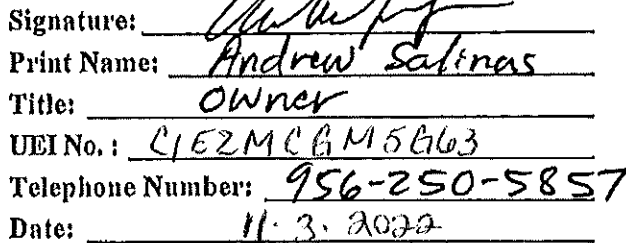 Signature:
Print Name: Andrew Salinas
Title: Owner
UEI No.: C1EZMCGM5G63
Telephone Number: 956-250-5857
Date: 11.3.2022